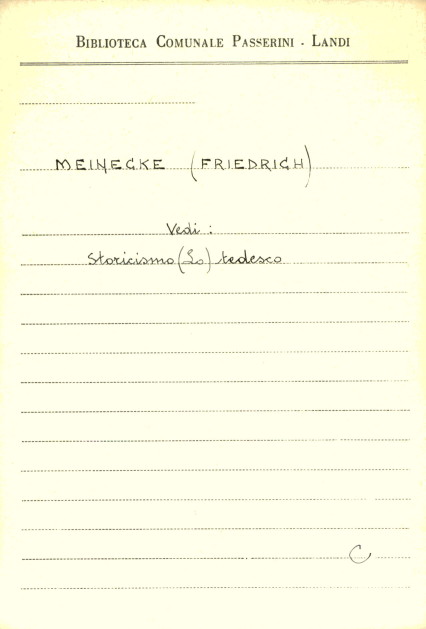 BIBLIOTECA COMUNALE PASSERINI - LANDI
MEINECKE (FRIEDRICH)
Vedi :
Storicismo (Lo) tedesco
C